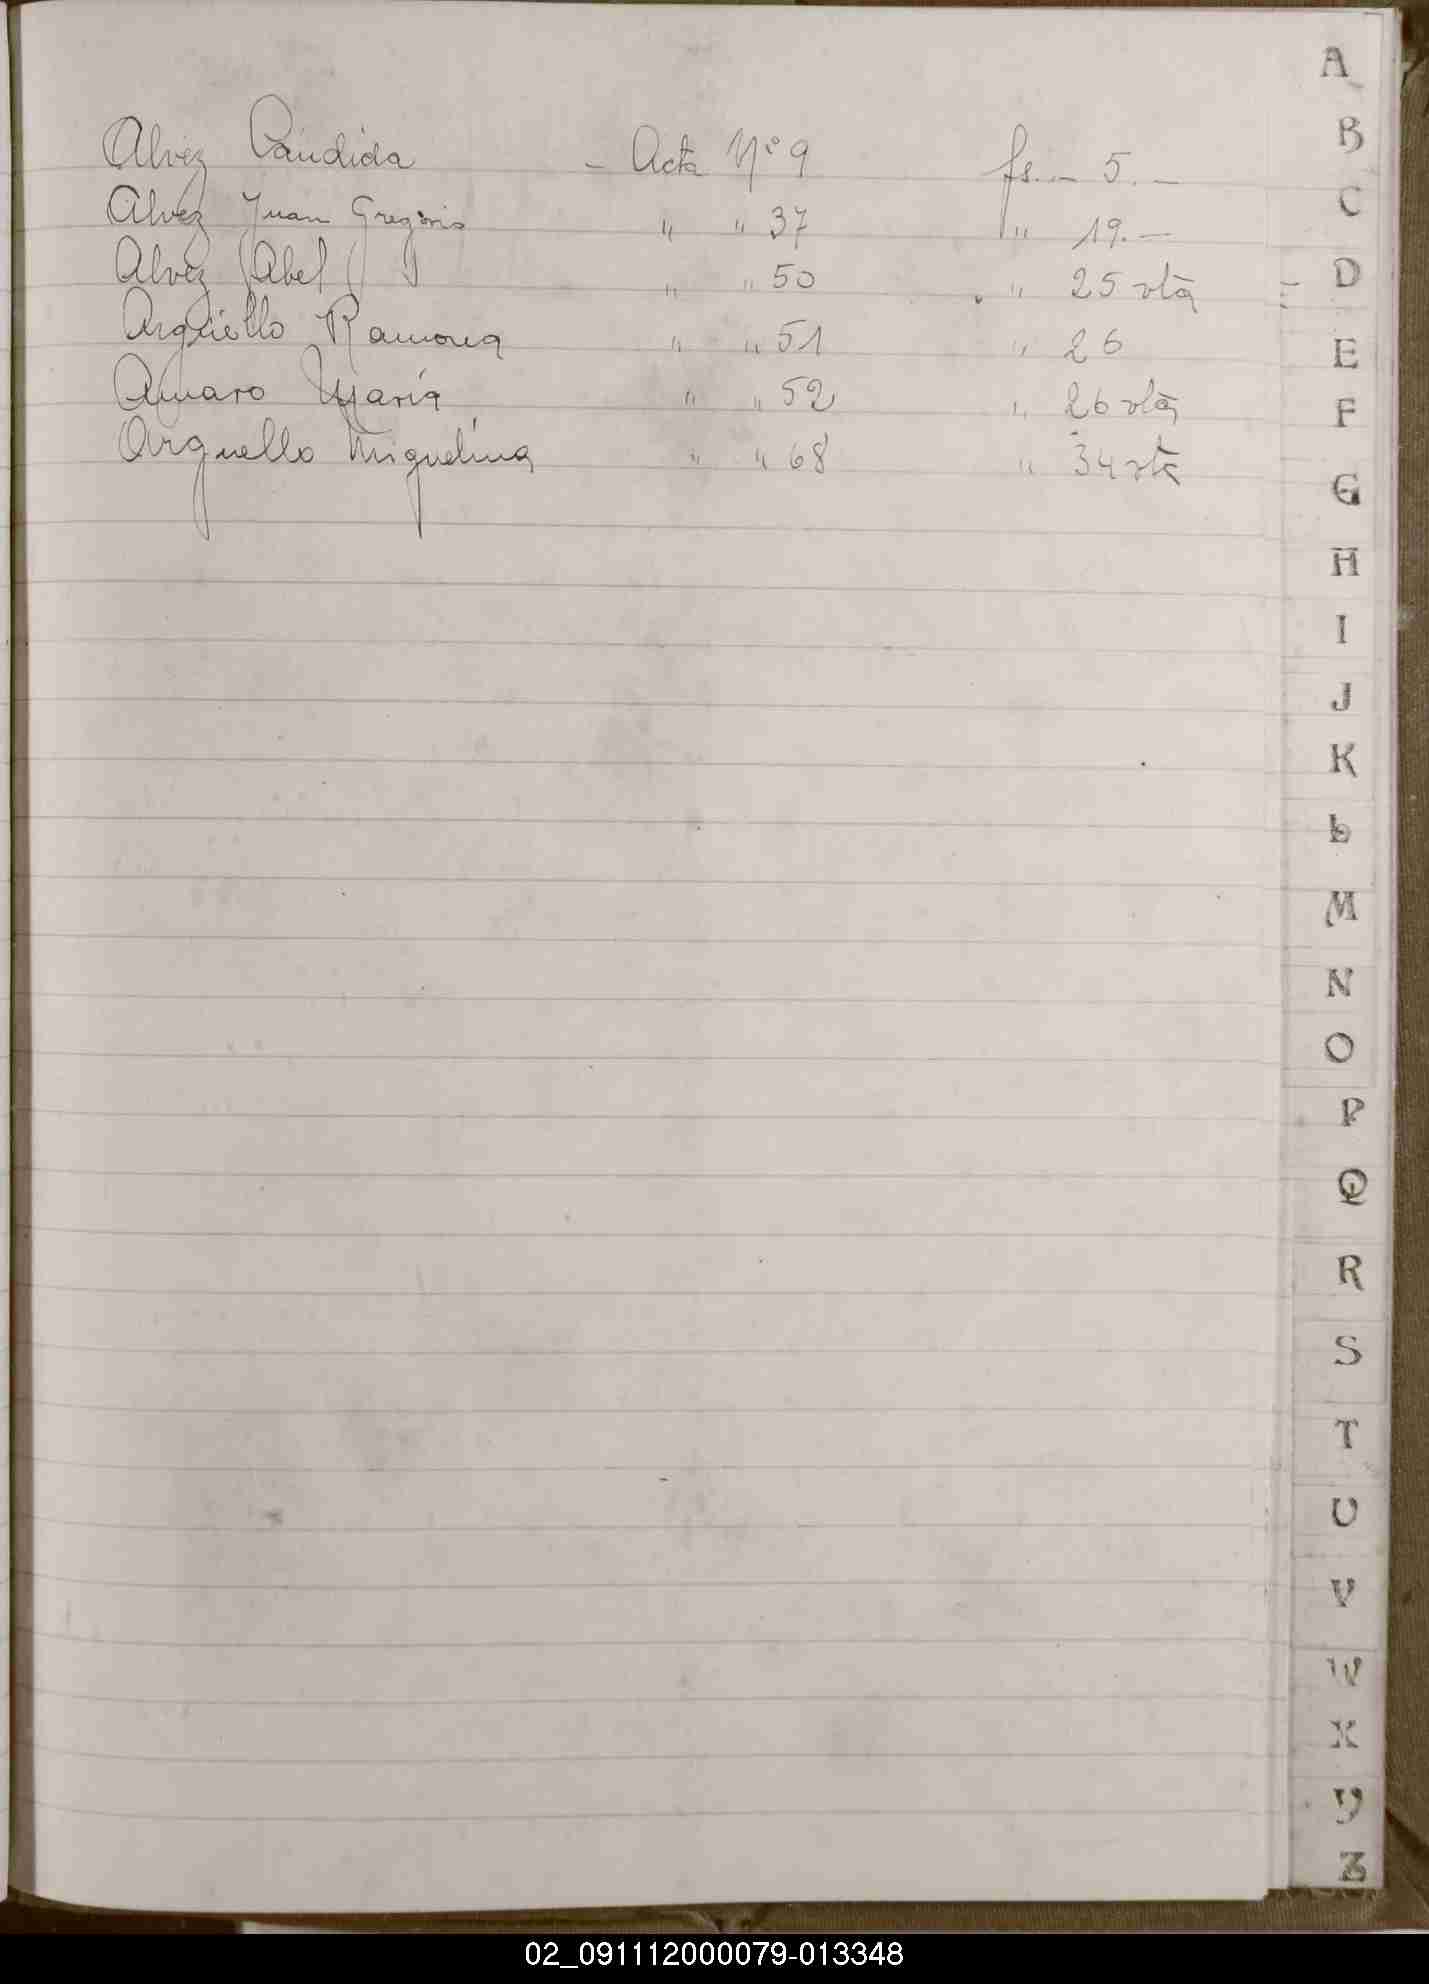 Alvez Cándida - Acta Nº 9 fs. - 5. -
Alvez Juan Gregorio " " 37 " 19. -
Alvez Abel " " 50 " 25 vta
Argüello Ramona " " 51 " 26
Amaro María " " 52 " 26 vta
Arguello Miguelina " " 68 " 34 vta
A
B
C
D
E
F
G
H
I
J
K
L
M
N
O
P
Q
R
S
T
U
V
W
X
Y
Z
02_091112000079-013348